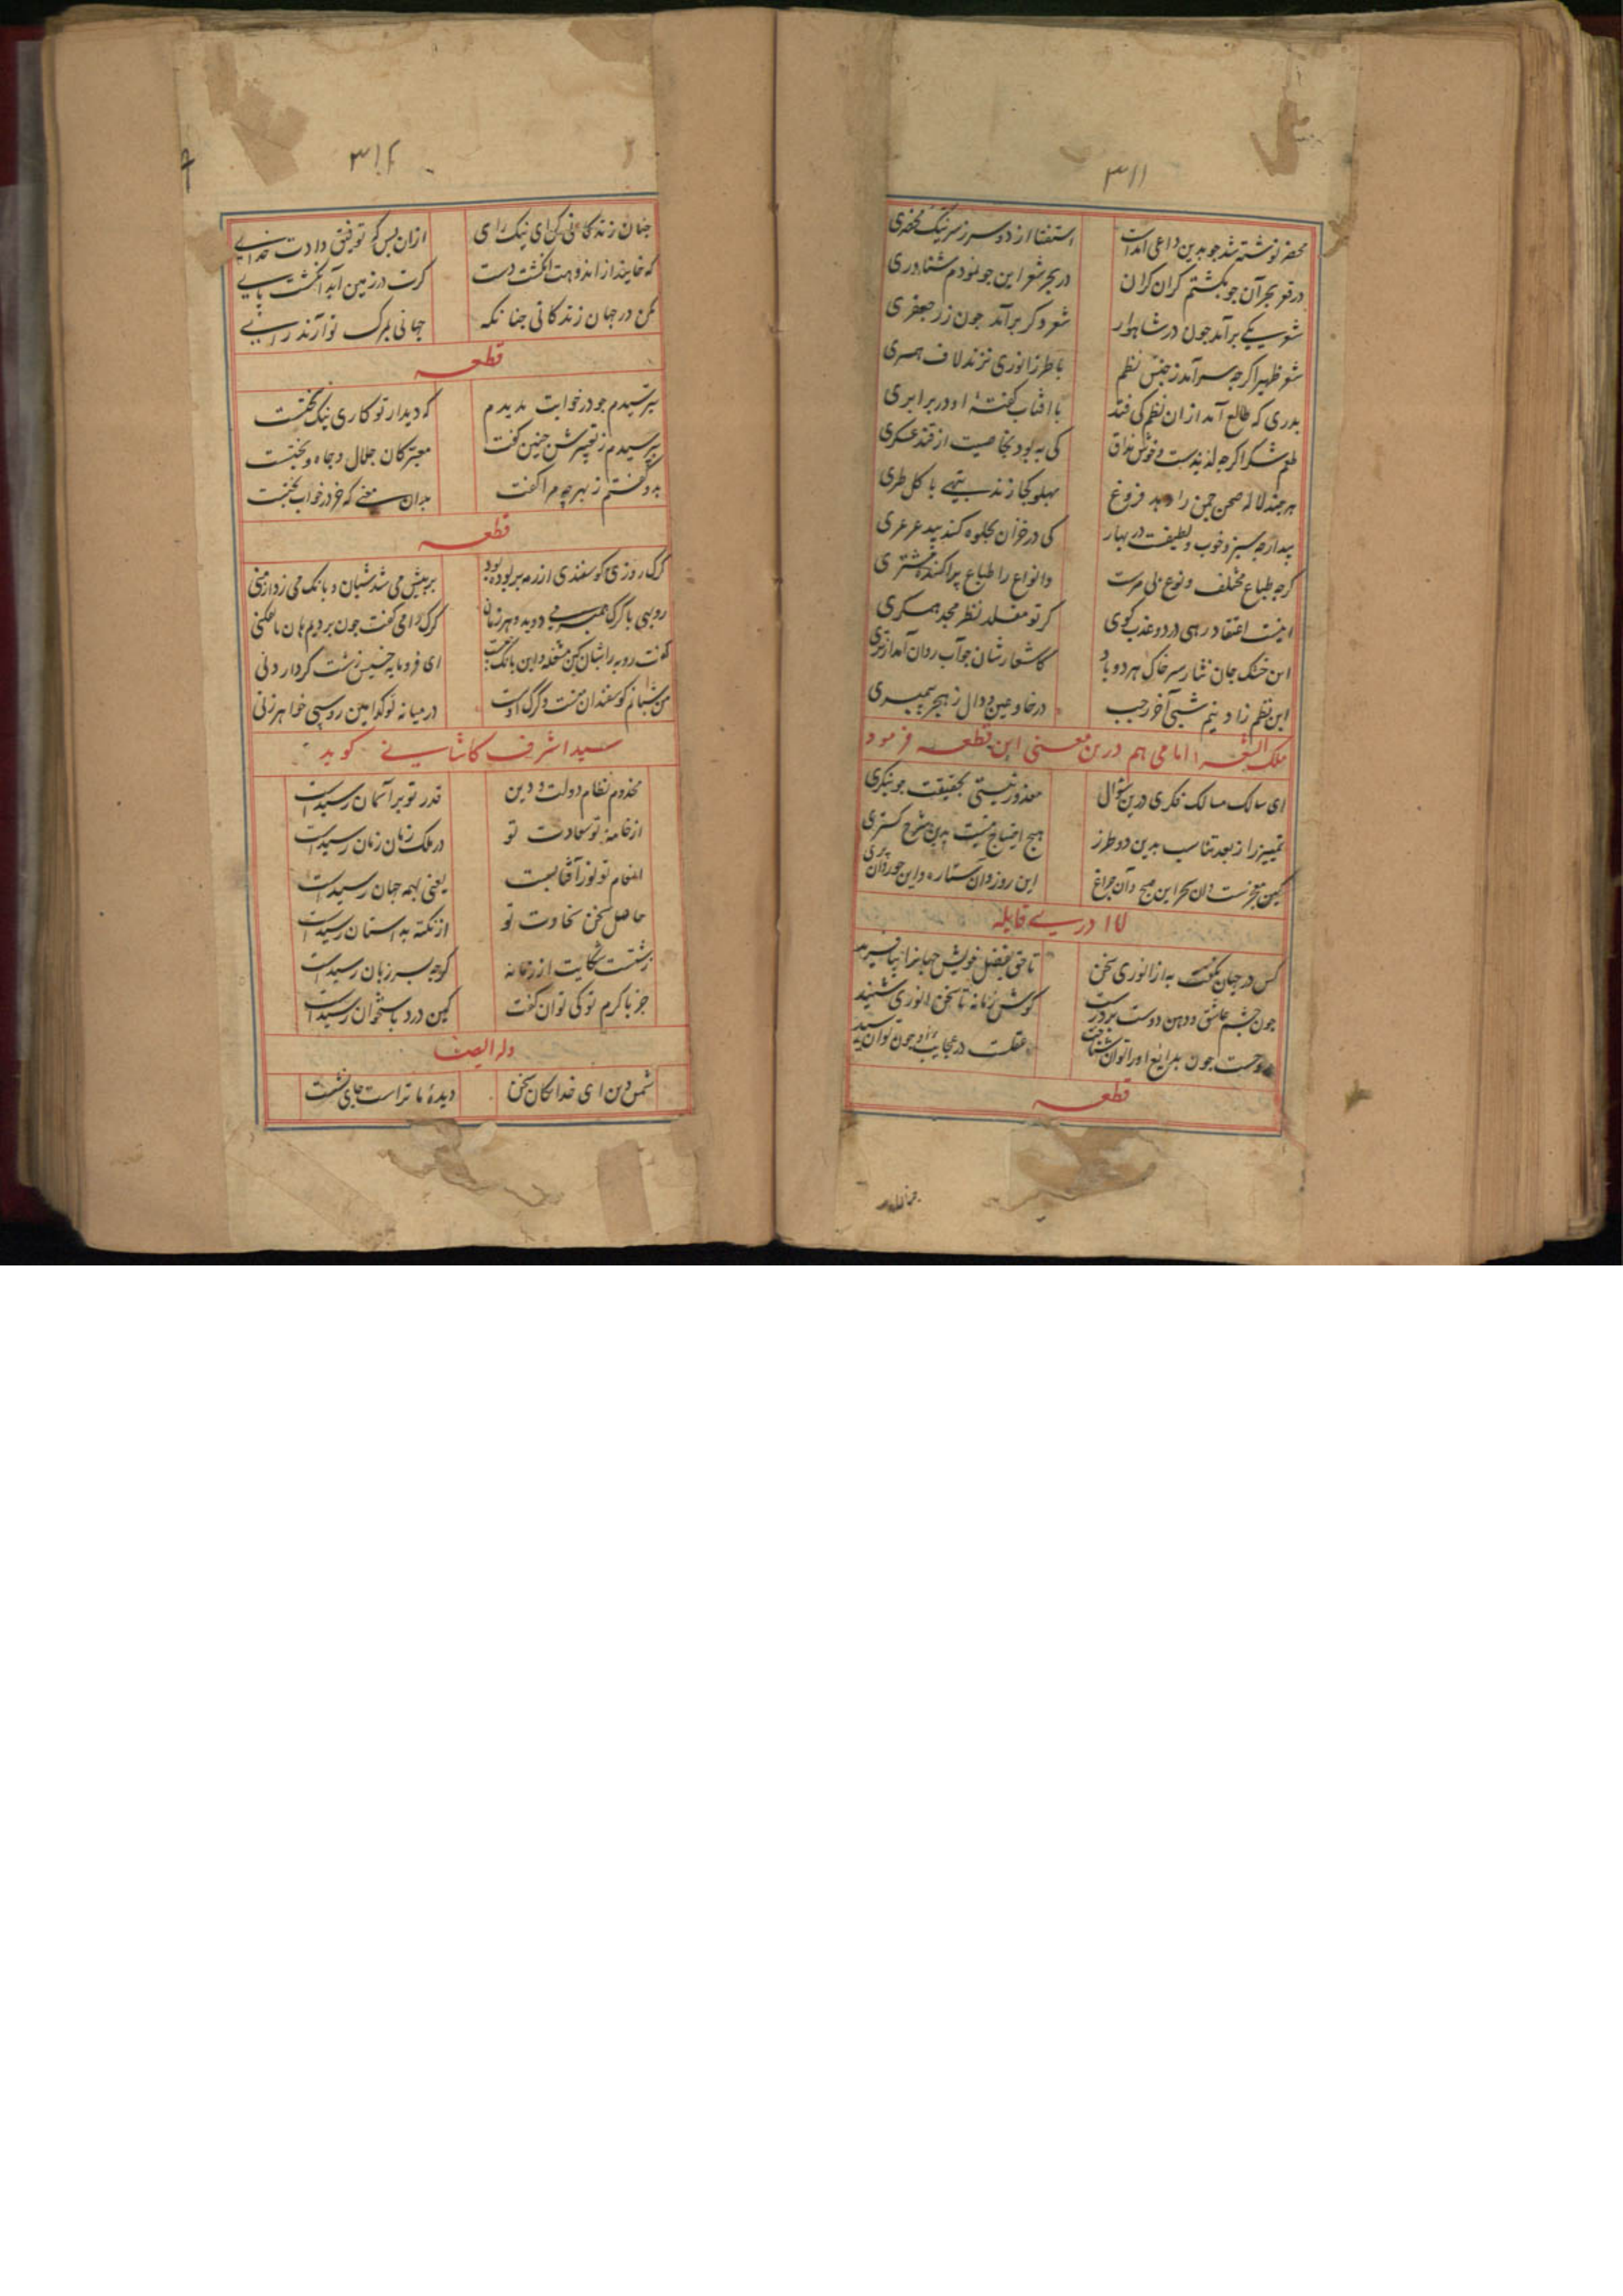 ۳۱۱
محضر نوشته شد جو بدین داعی آمدست استفتا از دو سرور سر نیک محضری
در قعر بحر آن جو بکشتم کران کران در بحر شعر این جو نمودم شناوری
شعر یکی برآمد جون در شاهوار شعر دکر برآمد جون زر جعفری
شعر ظهیر اکرجه سرآمد ز جنس نظم با طرز انوری نزند لاف همسری
بدری که طالع آمد ازان نظم کی فتد با افتاب کفتهٔ او در برابری
طعم شکر اکرجه لذیذست و خوش مذاق کی به بود بخاصیت از قند عسکری
هرجند لاله صحن جمن را دهد فروغ پهلو کجا زند بتهی با کل طری
بید ارجه سبز و خوب و لطیفست در بهار کی در خزان بجلوه کند بید عرعری
کرجه طباع مختلف و نوع بی مرست وانواع را طباع پراکنده مشتری
اینست اعتقاد رهی در دو عذب کوی کر تو مقلد نظر مجد همکری
این خنک جان نثار سر خاک هر دو باد کاشعارشان جو آب روان آمد از تری
این نظم زاد نیم شبی آخر رجب در خا و عین و دال ز هجر پیمبری
ملک الشعرا امامی هم درین معنی این قطعه فرمود
ای سالک مسالک فکری درین سوال معذور نیستی بحقیقت جو بنکری
تمییز را ز بعد تناسب بدین دو طرز هیچ احتیاج نیست بدین شرح کستری
کین معجزست و آن سحر این صبح و آن جراغ این روز و آن ستاره و این حور و آن پری
لا ادری قایله
کس در جهان نکفت به از انوری سخن تا حق بفضل خویش جهانرا بیافرید
جون جشم عاشق و دهن دوست پر درست کوش زمانه تا سخن انوری شنید
وحیست جون بدایع او را توان شناخت عقلست در عجایب او جون توان رسید
قطعه
۳۱۲
جنان زندکانی کن ای نیک رای ازان پس که توفیق دادت خدای
که خایند از اندوهت انکشت دست کرت در زمین آید انکشت پای
مکن در جهان زندکانی جنانکه جهانی بمرک تو آرند رای
قطعه
بترسیدم جو در خوابت بدیدم که دیدار تو کاری نیک سختست
بپرسیدم ز تعبیرش جنین کفت معبر کان جلال و جاه و بختست
بدو کفتم ز بهر جه مرا کفت بدان معنی که خر در خواب بختست
قطعه
کرک روزی کوسفندی از رمه بربوده بود برپیش می شد شبان و بانک می زد از منی
روبهی با کرک همبر می دوید و هر زمان کرک را می کفت جون بردیم هان تا نفکنی
کفت روبه را شبان کین مشغله و این بانک جیست ای فرومایه خسیس زشت کردار دنی
من شبانم کوسفندان منست و کرک اوست در میانه تو کدامین روسپی خواهر زنی
سید اشرف کاشانی کوید
مخدوم نظام دولت و دین قدر تو بر آسمان رسیدست
از خامهٔ تو سعادت تو در ملک زمان زمان رسیدست
انعام تو نور آفتابست یعنی بهمه جهان رسیدست
حاصل سخن سخاوت تو از نکته بداستان رسیدست
زشتست شکایت از زمانه کرجه بسر زبان رسیدست
جز با کرم تو کی توان کفت کین درد باستخوان رسیدست
وله ایضا
شمس دین ای خدایکان سخن دیدهٔ ما تراست جای نشست